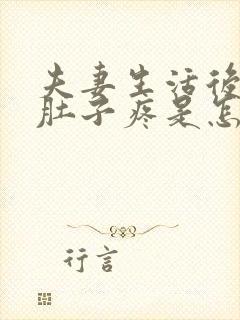 夫妻生活後
肚子疼是怎
行言